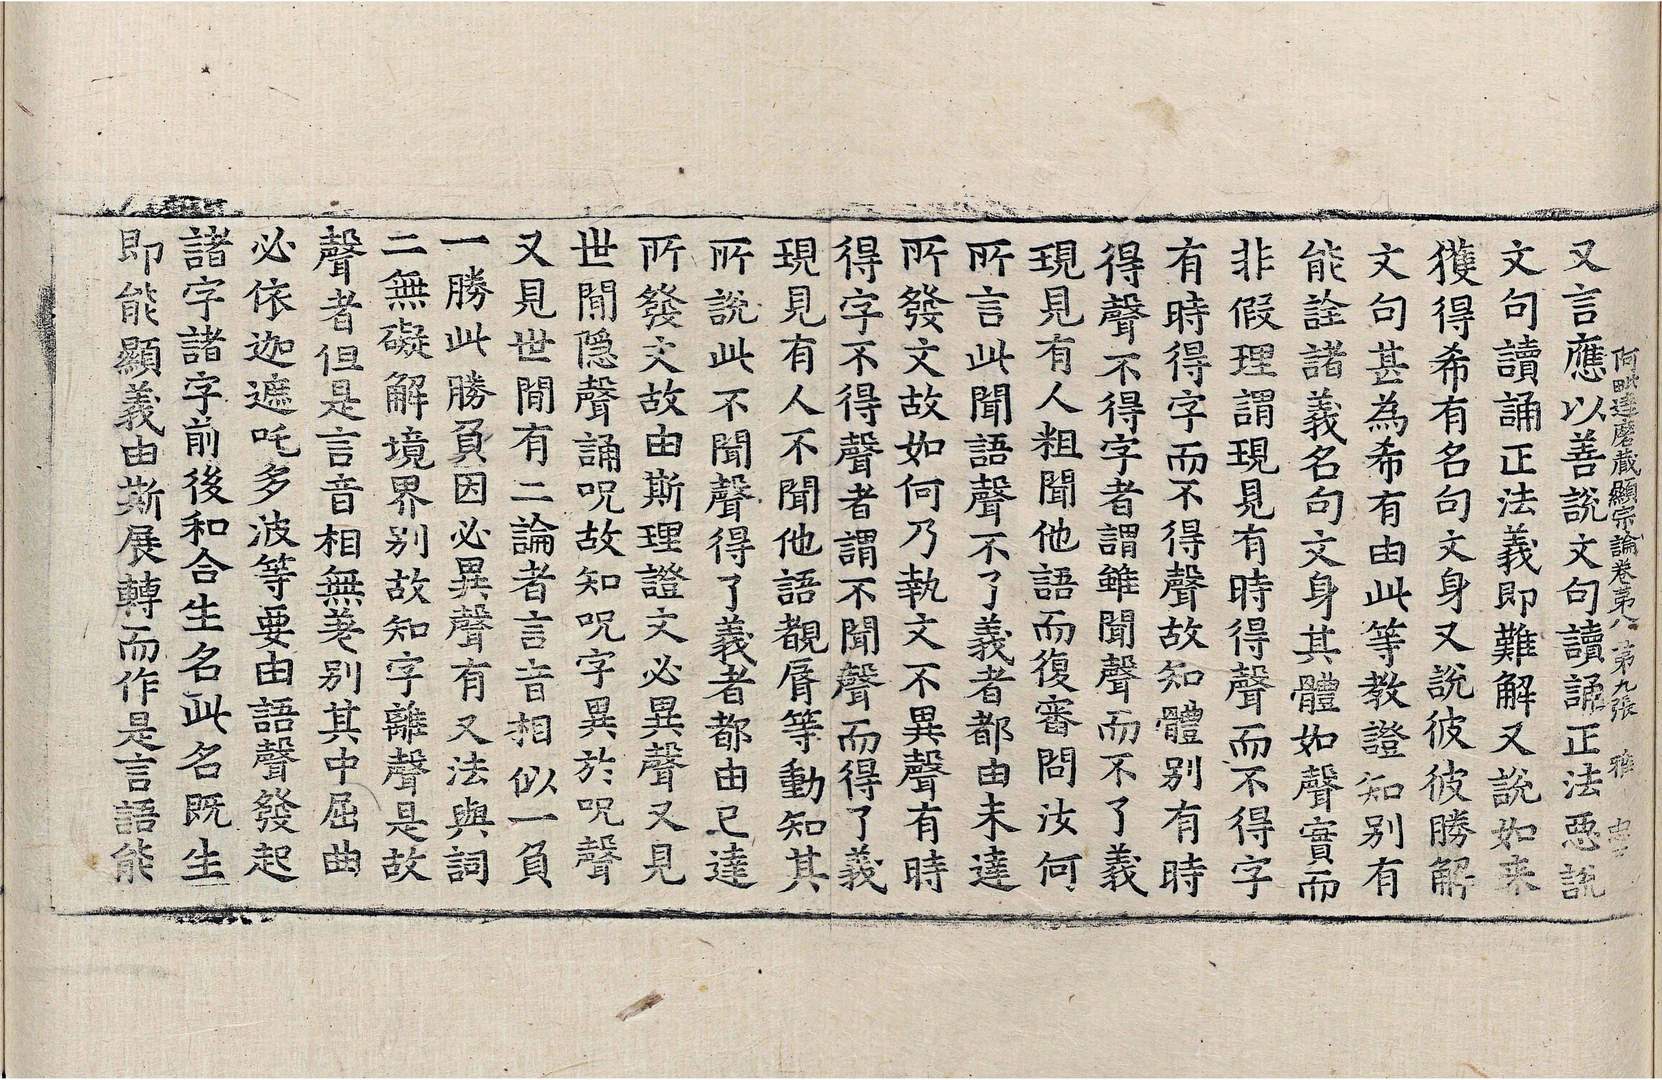 阿毗達磨藏顯宗論卷第八 第九張 雅
又言應以善說文句讀誦正法惡說
文句讀誦正法義即難解又說如來
獲得希有名句文身又說彼彼勝解
文句甚為希有由此等教證知別有
能詮諸義名句文身其體如聲實而
非假理謂現見有時得聲而不得字
有時得字而不得聲故知體別有時
得聲不得字者謂雖聞聲而不了義
現見有人粗聞他語而復審問汝何
所言此聞語聲不了義者都由未達
所發文故如何乃執文不異聲有時
得字不得聲者謂不聞聲而得了義
現見有人不聞他語覩脣等動知其
所說此不聞聲得了義者都由已達
所發文故由斯理證文必異聲又見
世間隱聲誦呪故知呪字異於呪聲
又見世間有二論者言音相似一負
一勝此勝負因必異聲有又法與詞
二無礙解境界別故知字離聲是故
聲者但是言音相無差別其中屈曲
必依迦遮吒多波等要由語聲發起
諸字諸字前後和合生名此名既生
即能顯義由斯展轉而作是言語能